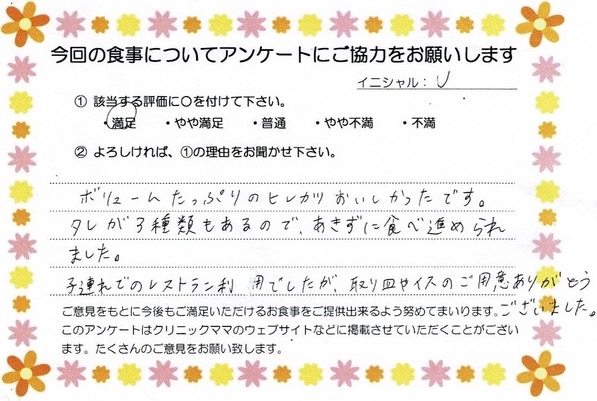 今回の食事についてアンケートにご協力をお願いします
イニシャル： U
① 該当する評価に○を付けて下さい。
・満足 ・やや満足 ・普通 ・やや不満 ・不満
② よろしければ、①の理由をお聞かせ下さい。
ボリュームたっぷりのヒレカツおいしかったです。
タレが3種類もあるので、あきずに食べ進められ
ました。
子連れでのレストラン利用でしたが、取り皿やイスのご用意ありがとう
ございました。
ご意見をもとに今後もご満足いただけるお食事をご提供出来るよう努めてまいります。
このアンケートはクリニックママのウェブサイトなどに掲載させていただくことがござい
ます。たくさんのご意見をお願い致します。